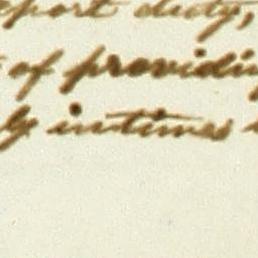 export duty,
of providin
ly in times